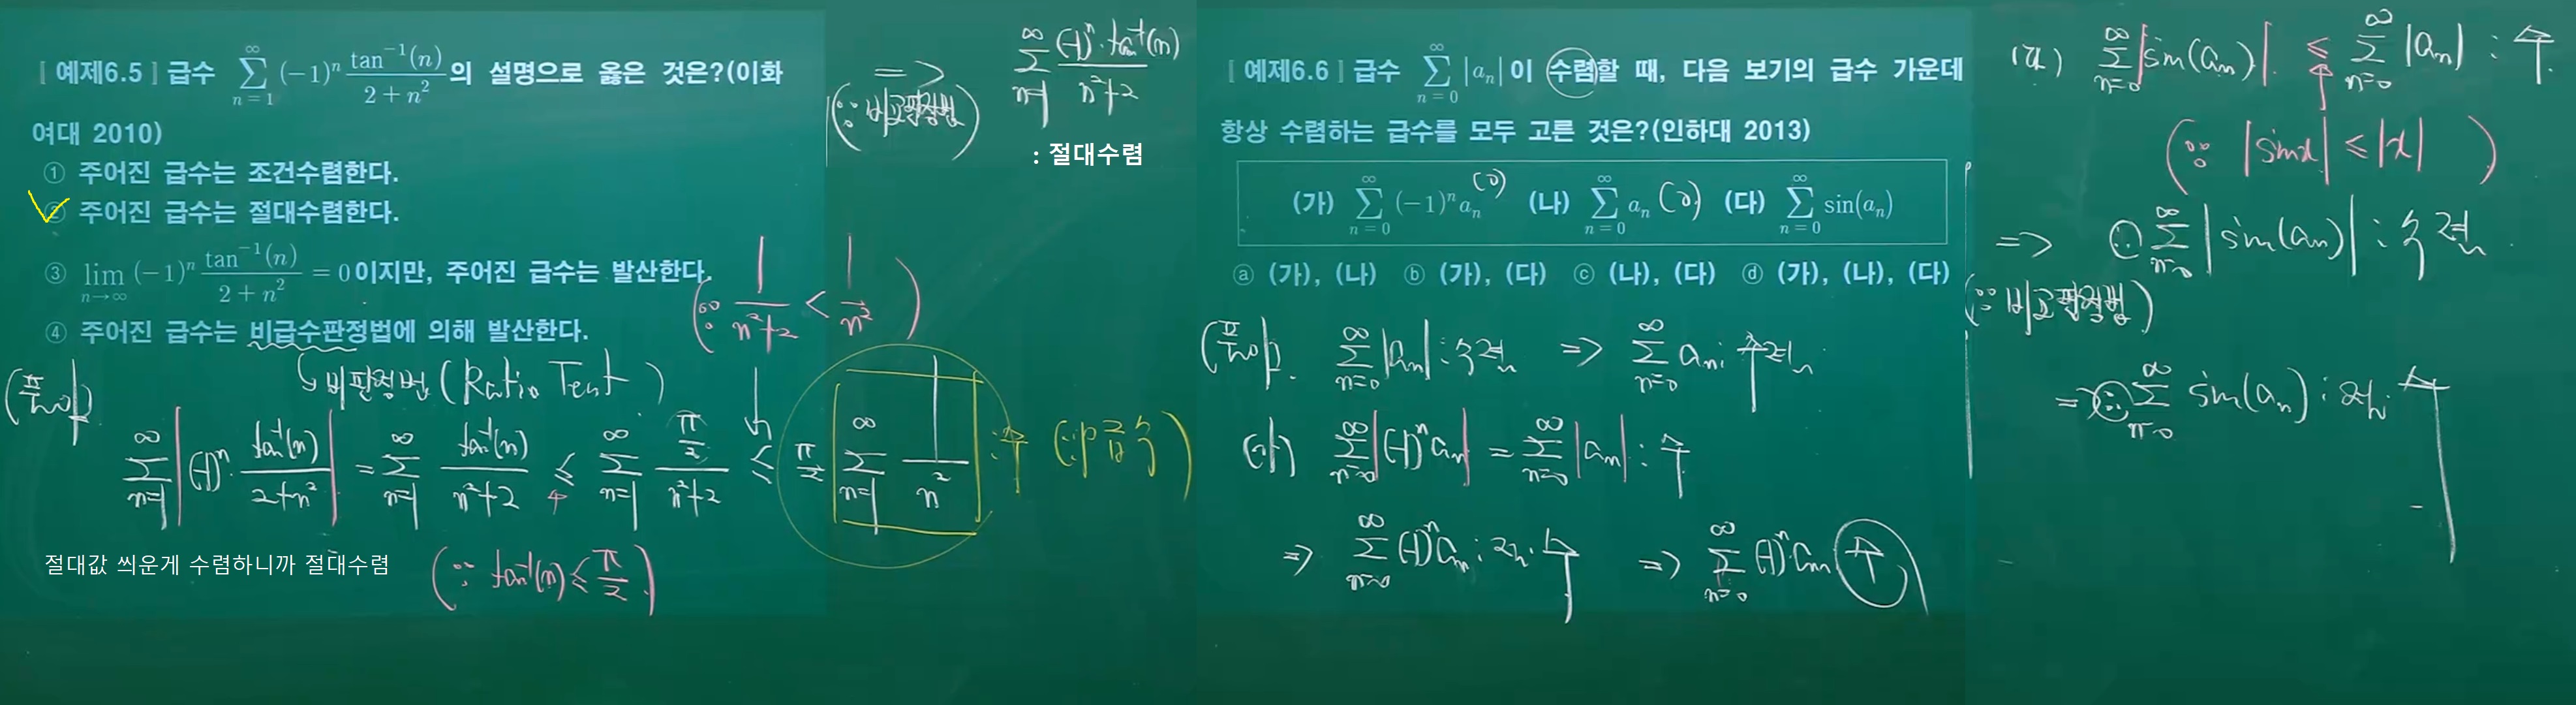 [ 예제6.5 ] 급수 ∑_{n=1}^{∞} (-1)^n tan^{-1}(n)/(2+n^2) 의 설명으로 옳은 것은?(이화
여대 2010)
① 주어진 급수는 조건수렴한다.
② 주어진 급수는 절대수렴한다.
③ lim_{n→∞} (-1)^n tan^{-1}(n)/(2+n^2) = 0이지만, 주어진 급수는 발산한다.
④ 주어진 급수는 비급수판정법에 의해 발산한다.
↳ 비판정법 (Ratio Test)
(풀이)
∑_{n=1}^{∞} |(-1)^n · tan^{-1}(n)/(2+n^2)| = ∑_{n=1}^{∞} tan^{-1}(n)/(n^2+2) ≤ ∑_{n=1}^{∞} (π/2)/(n^2+2) ≤ π/2 ∑_{n=1}^{∞} 1/n^2 : 수 (∵ p급수)
(∵ 1/(n^2+2) < 1/n^2)
(∵ tan^{-1}(n) ≤ π/2)
절대값 씌운게 수렴하니까 절대수렴
⇒ ∑_{n=1}^{∞} (-1)^n · tan^{-1}(n)/(n^2+2)
(∵ 비교판정법)
: 절대수렴
[ 예제6.6 ] 급수 ∑_{n=0}^{∞} |a_n| 이 수렴할 때, 다음 보기의 급수 가운데
항상 수렴하는 급수를 모두 고른 것은?(인하대 2013)
(가) ∑_{n=0}^{∞} (-1)^n a_n (o) (나) ∑_{n=0}^{∞} a_n (o) (다) ∑_{n=0}^{∞} sin(a_n)
ⓐ (가), (나) ⓑ (가), (다) ⓒ (나), (다) ⓓ (가), (나), (다)
(풀이). ∑_{n=0}^{∞} |a_n| : 수렴 ⇒ ∑_{n=0}^{∞} a_n : 수렴
(가) ∑_{n=0}^{∞} |(-1)^n a_n| = ∑_{n=0}^{∞} |a_n| : 수
⇒ ∑_{n=0}^{∞} (-1)^n a_n : 절대수 ⇒ ∑_{n=0}^{∞} (-1)^n a_n 수
(다) ∑_{n=0}^{∞} |sin(a_n)| ≤ ∑_{n=0}^{∞} |a_n| : 수
(∵ |sin x| ≤ |x|)
⇒ ∴ ∑_{n=0}^{∞} |sin(a_n)| : 수렴
(∵ 비교판정법)
⇒ ∴ ∑_{n=0}^{∞} sin(a_n) : 절대수